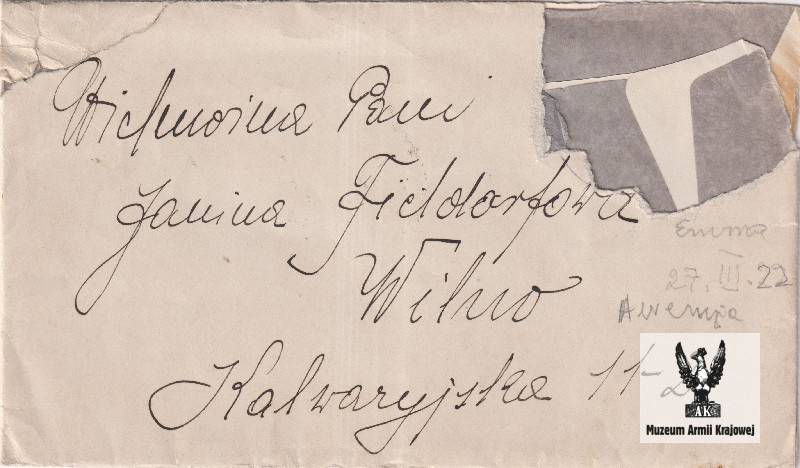 Wielmożna Pani
Janina Fieldorfowa
Wilno
Kalwaryjska 11-2
Emma
27. III. 22
AK
Muzeum Armii Krajowej